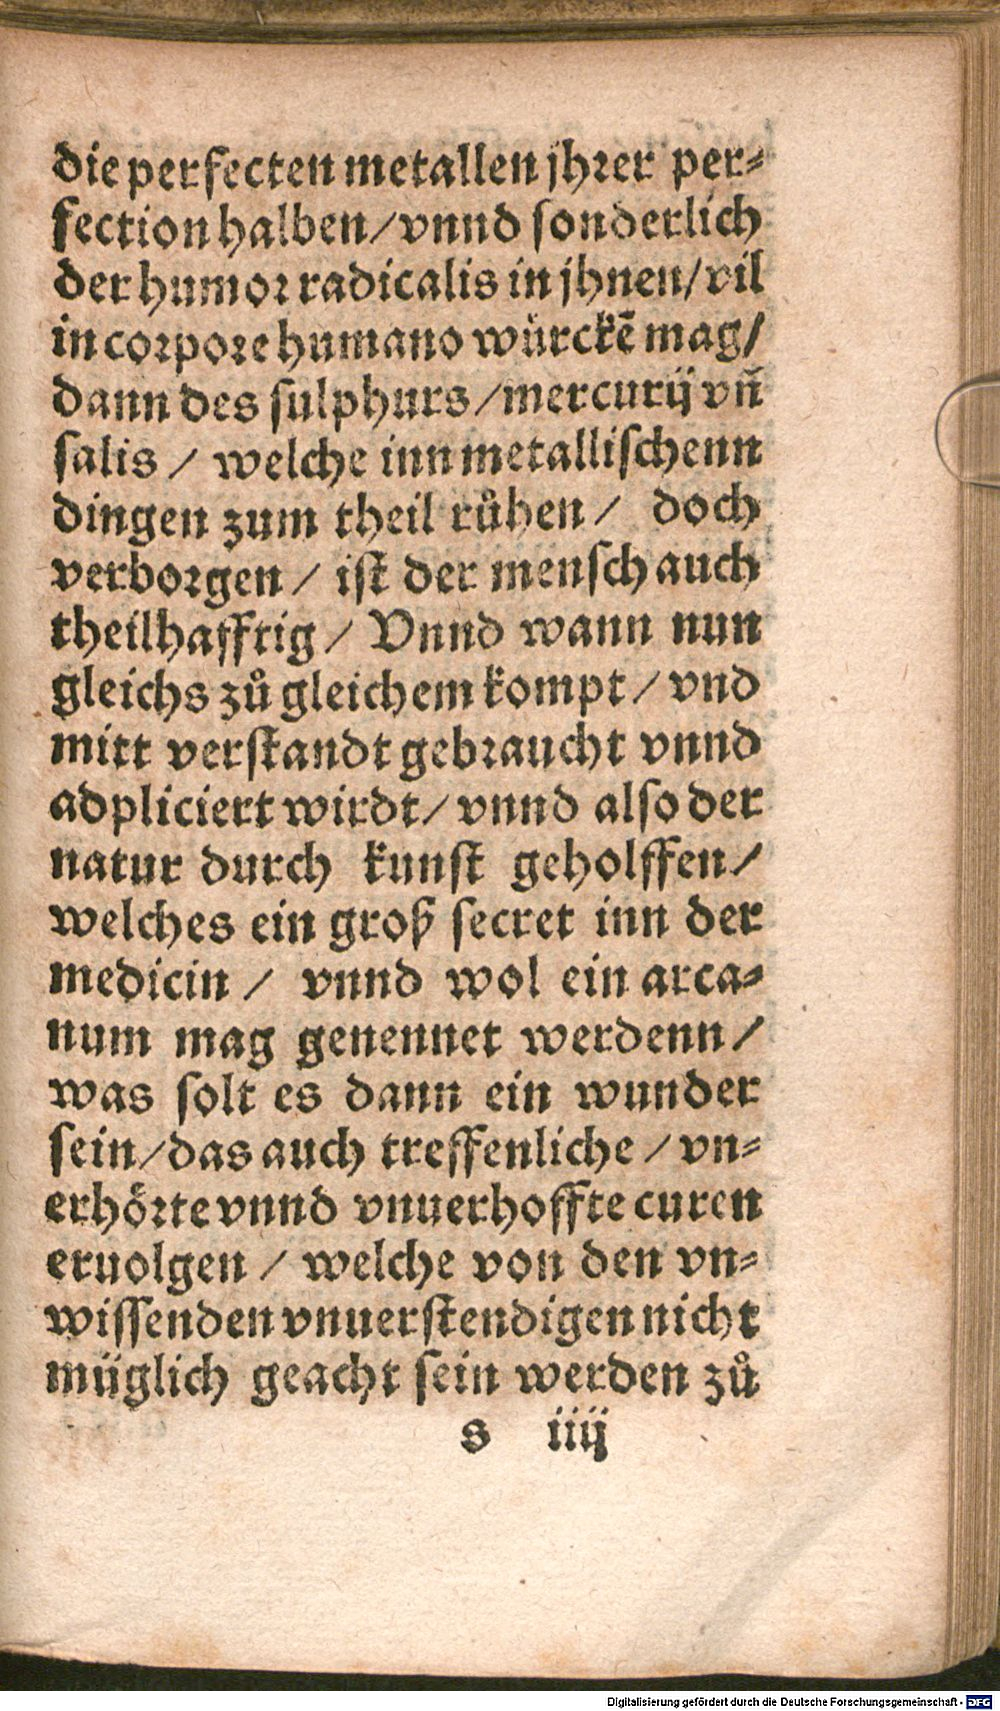 die perfecten metallen jhrer per⸗
fection halben/vnnd sonderlich
der humor radicalis in jhnen/vil
in corpore humano würckē mag/
dann des sulphurs/mercurij vñ
salis / welche inn metallischenn
dingen zum theil růhen / doch
verborgen / ist der mensch auch
theilhafftig / Vnnd wann nun
gleichs zů gleichem kompt / vnd
mitt verstandt gebraucht vnnd
adpliciert wirdt/ vnnd also der
natur durch kunst geholffen/
welches ein groß secret inn der
medicin / vnnd wol ein arca⸗
num mag genennet werdenn/
was solt es dann ein wunder
sein/das auch treffenliche / vn⸗
erhörte vnnd vnuerhoffte curen
eruolgen / welche von den vn⸗
wissenden vnuerstendigen nicht
müglich geacht sein werden zů
s iiij
Digitalisierung gefördert durch die Deutsche Forschungsgemeinschaft - DFG